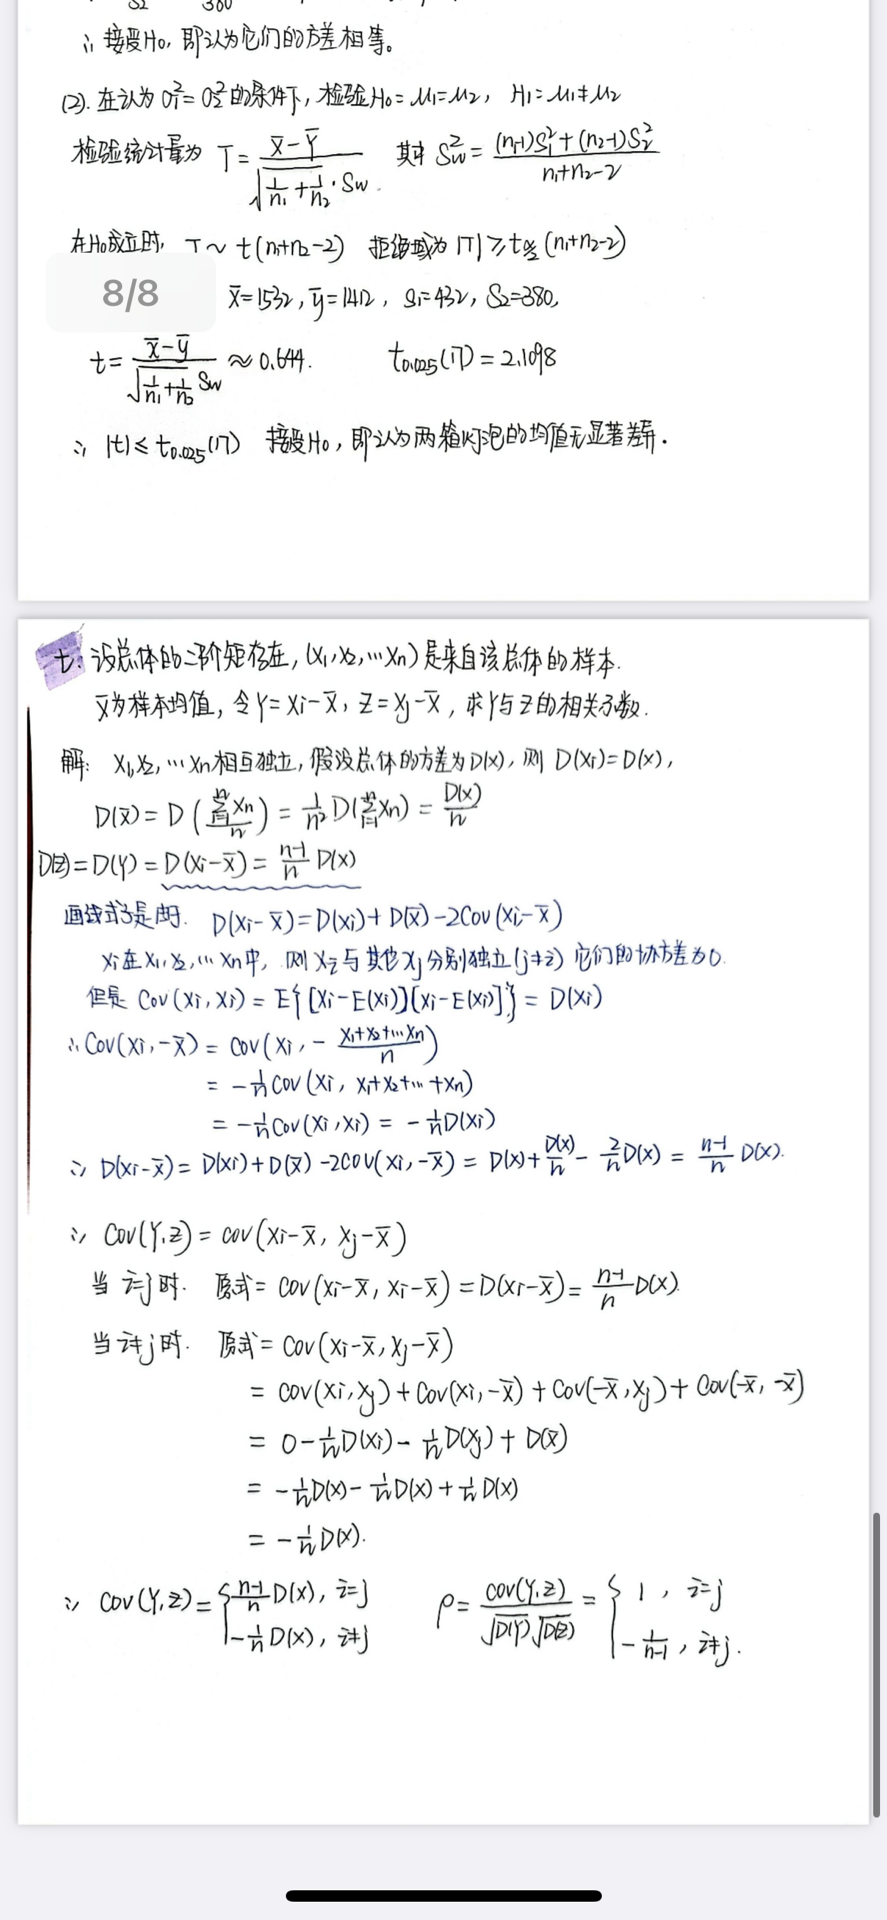 S2 380
∴ 接受H₀, 即认为它们的方差相等。
(2). 在认为 σ₁²=σ₂² 的条件下, 检验H₀=μ₁=μ₂, H₁=μ₁≠μ₂
检验统计量为 T= (X̄-Ȳ)/(√(1/n₁+1/n₂)·Sw). 其中 Sw²= ((n₁-1)S₁²+(n₂-1)S₂²)/(n₁+n₂-2)
在H₀成立时, T~t(n₁+n₂-2) 拒绝域为 |T|≥t_{α/2}(n₁+n₂-2)
8/8
x̄=1532, ȳ=1412, S₁=432, S₂=380,
t= (x̄-ȳ)/(√(1/n₁+1/n₂) Sw) ≈0.644. t₀.₀₂₅(17)=2.1098
∴ |t|≤t₀.₀₂₅(17) 接受H₀, 即认为两箱灯泡的均值无显著差异.
七. 设总体的二阶矩存在, (X₁,X₂,…Xn)是来自该总体的样本.
X̄为样本均值, 令Y=Xi-X̄, Z=Xj-X̄, 求Y与Z的相关系数.
解: X₁,X₂,…Xn相互独立, 假设总体的方差为D(X), 则 D(Xi)=D(X),
D(X̄)=D(∑Xn/n)=1/n² D(∑Xn)=D(X)/n
D(Z)=D(Y)=D(Xi-X̄)=(n-1)/n D(X)
画线式子是由于. D(Xi-X̄)=D(Xi)+D(X̄)-2Cov(Xi-X̄)
Xi在X₁,X₂,…Xn中, 则Xi与其他Xj分别独立(j≠i) 它们的协方差为0.
但是 Cov(Xi,Xi)=E{[Xi-E(Xi)][Xi-E(Xi)]}=D(Xi)
∴ Cov(Xi,-X̄)=Cov(Xi, -(X₁+X₂+…Xn)/n)
= -1/n Cov(Xi, X₁+X₂+…+Xn)
= -1/n Cov(Xi,Xi) = -1/n D(Xi)
∴ D(Xi-X̄)=D(Xi)+D(X̄)-2Cov(Xi,-X̄)=D(X)+D(X)/n-2/n D(X)=(n-1)/n D(X).
∴ Cov(Y,Z)=Cov(Xi-X̄, Xj-X̄)
当 i=j时. 原式=Cov(Xi-X̄, Xi-X̄)=D(Xi-X̄)=(n-1)/n D(X).
当i≠j时. 原式=Cov(Xi-X̄,Xj-X̄)
= Cov(Xi,Xj)+Cov(Xi,-X̄)+Cov(-X̄,Xj)+Cov(-X̄,-X̄)
= 0-1/n D(Xi)-1/n D(Xj)+D(X̄)
= -1/n D(X)-1/n D(X)+1/n D(X)
= -1/n D(X).
∴ Cov(Y,Z)={(n-1)/n D(X), i=j ρ= Cov(Y,Z)/(√D(Y)√D(Z)) = {1, i=j
-1/n D(X), i≠j -1/(n-1), i≠j.